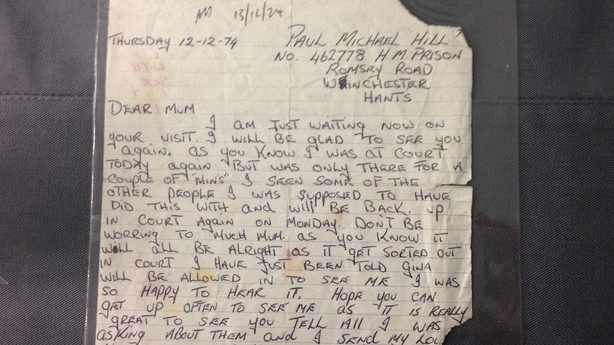 13/12/74
THURSDAY 12-12-74
PAUL MICHAEL HILL
NO. 462778 H.M PRISON
ROMSRY ROAD
WINCHESTER
HANTS
DEAR MUM
I AM JUST WAITING NOW ON
YOUR VISIT. I WILL BE GLAD TO SEE YOU
AGAIN. AS YOU KNOW I WAS AT COURT
TODAY AGAIN BUT WAS ONLY THERE FOR A
"COUPLE OF MINS" I SEEN SOME OF THE
OTHER PEOPLE I WAS SUPPOSED TO HAVE
DID THIS WITH AND WILL BE BACK UP
IN COURT AGAIN ON MONDAY. DON'T BE
WORRING TO MUCH MUM AS YOU KNOW IT
WILL ALL BE ALRIGHT AS IT GET SORIED OUT
IN COURT I HAVE JUST BEEN TOLD GINA
WILL BE ALLOWED IN TO SEE ME I WAS
SO HAPPY TO HEAR IT. HOPE YOU CAN
GET UP OFTEN TO SEE ME AS IT IS REALLY
GREAT TO SEE YOU. TELL ALL I WAS
ASKING ABOUT THEM AND I SEND MY